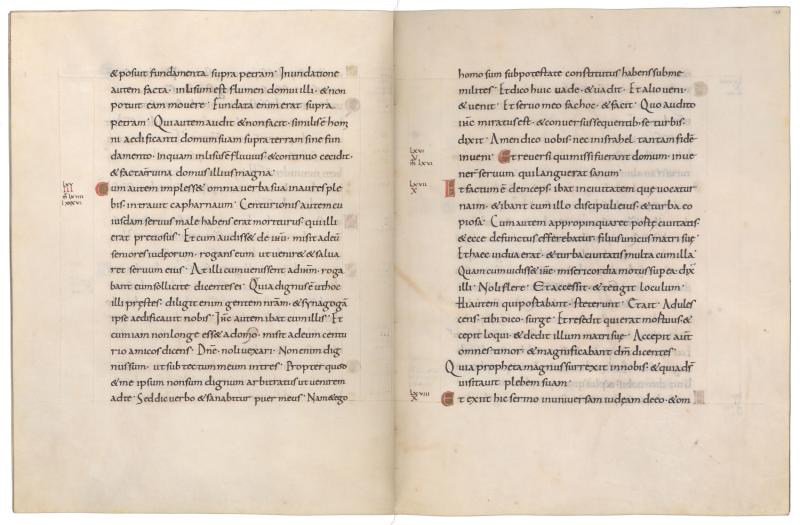 & posuit fundamenta supra petram· Inundatione
autem facta· inlisum est flumen domui illi· & non
potuit eam mouere· Fundata enim erat supra
petram· Qui autem audit & non facit· similis ÷ homi
ni aedificanti domum suam supra terram sine fun
damento· in quam inlisus ÷ fluuius· & continuo cecidit·
& facta ÷ ruina domus illius magna·
lxv
III
lxxxvi
Cum autem impless& omnia uerba sua in aures ple
bis· intrauit capharnaum· Centurionis autem cu
iusdam seruus male habens erat moriturus· qui illi
erat pretiosus· Et cum audiss& de ihu· misit ad eū
seniores iudęorum· rogans eum ut ueniret & salua
ret seruum eius· At illi cum uenissent ad ihm· roga
bant eum sollicite dicentes ei· Quia dignus ÷ ut hoc
illi prestes· diligit enim gentem nram· & synagogā
ipse aedificauit nobis· Ihs autem ibat cum illis· Et
cum iam non longe ess& a domo· misit ad eum centu
rio amicos dicens· Dne· noli uexari· Non enim dig
nus sum· ut sub tectum meum intres· Propter quod
& me ipsum non sum dignum arbitratus ut uenirem
ad te· Sed dic uerbo & sanabitur puer meus· Nam & ego
homo sum sub potestate constitutus habens sub me
milites· Et dico huic uade· & uadit· Et alio ueni·
& uenit· Et seruo meo fac hoc· & facit· Quo audito
ihs miratus est· & conuersus sequentib; se turbis·
dixit· Amen dico uobis· nec in israhel tantam fidē
lxvi
V
inueni· Et reuersi qui missi fuerant domum· inue
nerunt seruum qui languerat sanum·
lxvii
X
Et factum ÷ deinceps· ibat in ciuitatem que uocatur
naim· & ibant cum illo discipuli eius· & turba co
piosa· Cum autem appropinquaret porte ciuitatis·
& ecce defunctus efferebatur· filius unicus matris suę
Et haec uidua erat· & turba ciuitatis multa cum illa·
Quam cum uidisse· ihs· misericordia motus sup ea· dix
illi· Noli flere· Et accessit· & tetigit loculum·
Hi autem qui portabant· steterunt· Et ait· Adules
cens· tibi dico· surge· Et resedit qui erat mortuus· &
cepit loqui· & dedit illum matri suę· Accepit aut
omnes timor· & magnificabant dm dicentes·
Quia propheta magnus surrexit in nobis· & quia ds
uisitauit plebem suam·
lxviii
X
Et exiit hic sermo in uniuersam iudęam de eo· & om